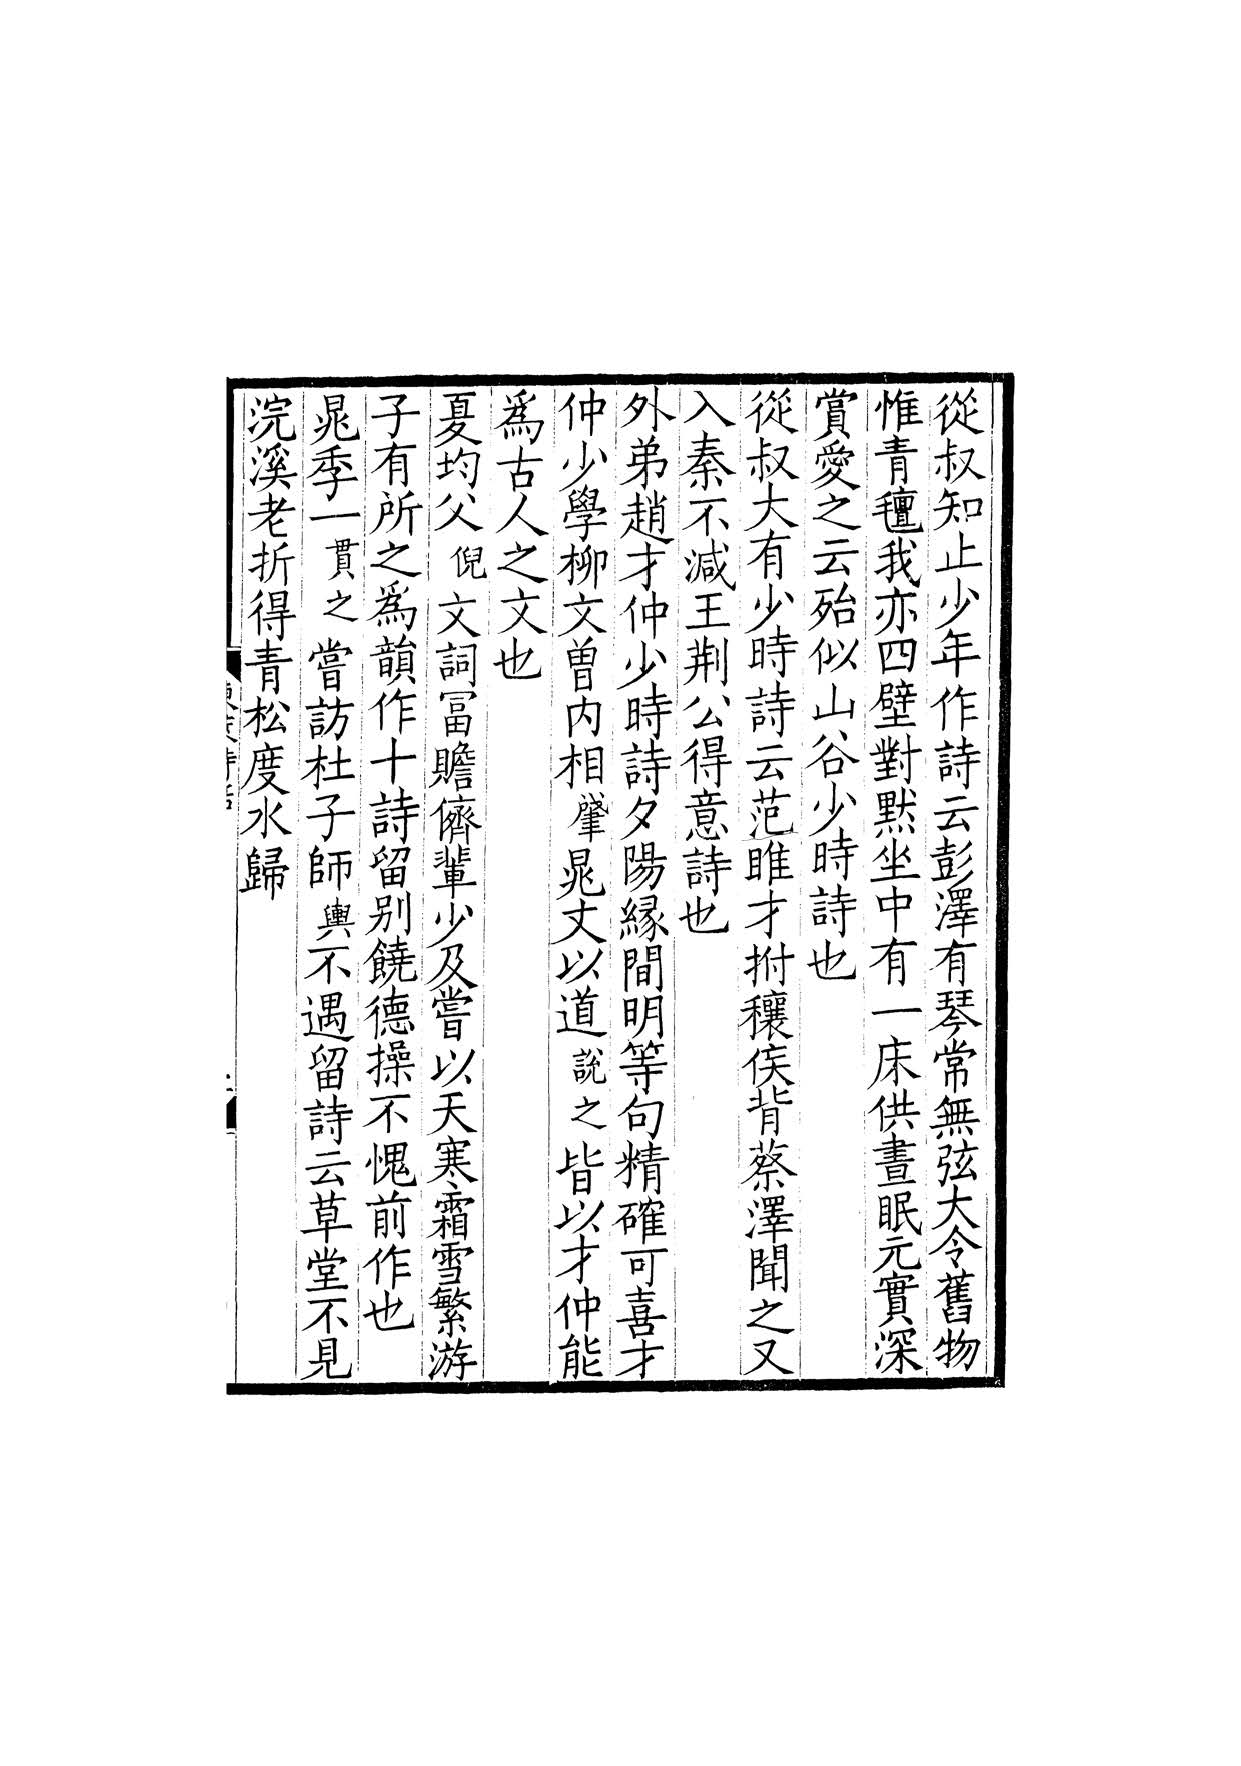 從叔知止少年作詩云彭澤有琴常無弦大令舊物
惟青氊我亦四壁對默坐中有一床供晝眠元實深
賞愛之云殆似山谷少時詩也
從叔大有少時詩云范睢才拊穰侯背蔡澤聞之又
入秦不減王荆公得意詩也
外弟趙才仲少時詩夕陽緣間明等句精確可喜才
仲少學柳文曽内相肈晁丈以道說之皆以才仲能
爲古人之文也
夏均父倪文詞冨贍儕輩少及嘗以天寒霜雪繁游
子有所之爲韻作十詩留别饒德操不愧前作也
晁季一貫之嘗訪杜子師輿不遇留詩云草堂不見
浣溪老折得青松度水歸